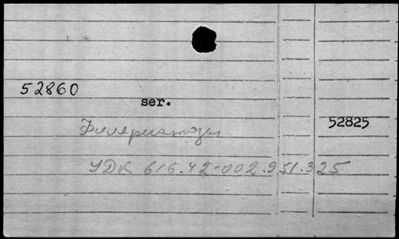 52860
ser.
Филяриатозы
52825
УДК 616.42-002.951.325